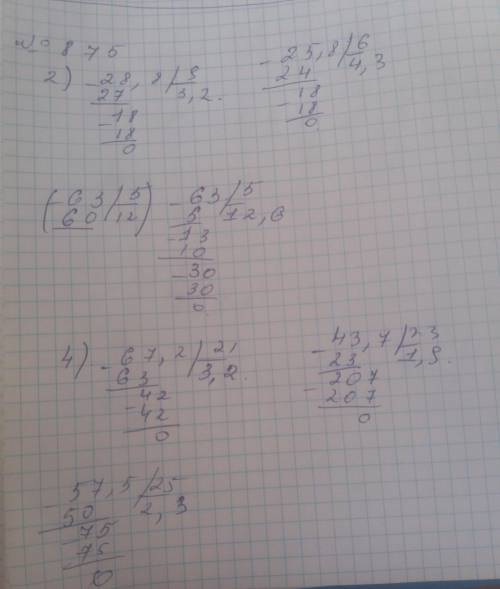 № 875
2) - 28,8 / 9
27 3,2.
- 18
18
0
- 25,8 / 6
24 4,3
- 18
18
0
( - 63 / 5
60 12 )
- 63 / 5
5 12,6
- 13
10
- 30
30
0
4) - 67,2 / 21
63 3,2.
- 42
42
0
- 43,7 / 23
23 1,9.
- 207
207
0
- 57,5 / 25
50 2,3
75
75
0